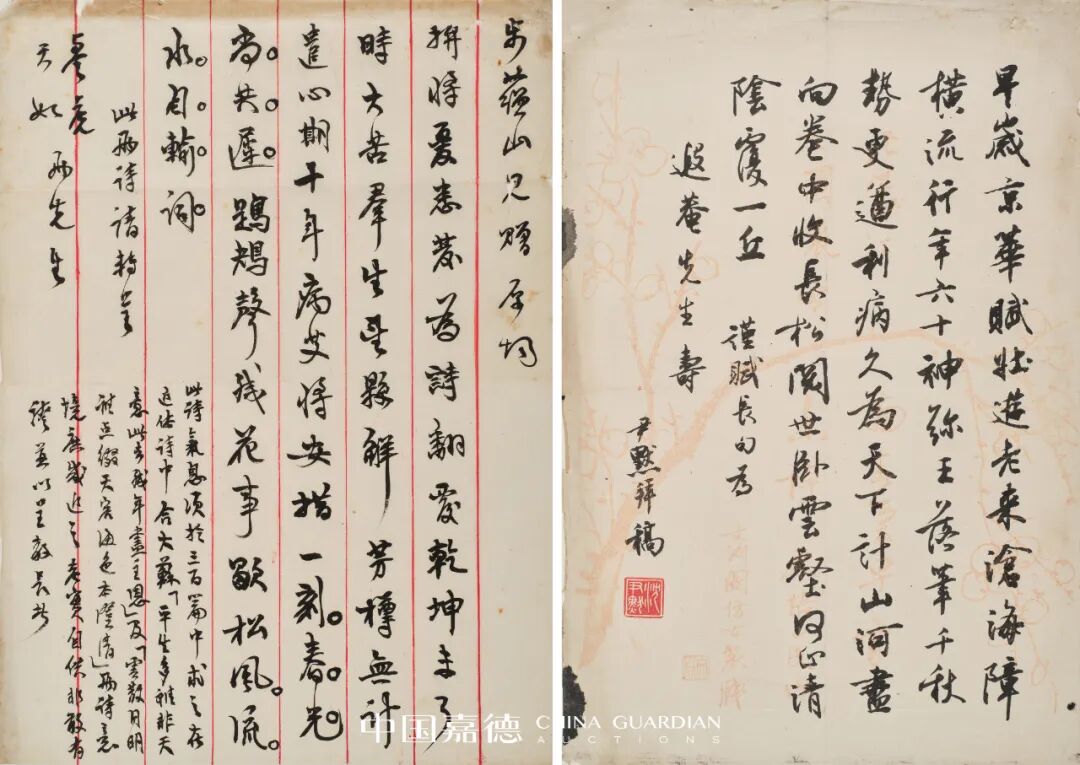 早歲京華賦壯遊老来滄海障
橫流行年六十神弥王落筆千秋
勢更遒利病久為天下計山河盡
向卷中收長松閱世卧雲壑何止清
陰覆一丘 謹賦長句為
遐菴先生壽
尹默拜稿
沈尹默
步蘊山兄贈原均
拚將憂患發為詩翻覆乾坤未了
時大苦羣生望縣解芳樽無計
遣心期十年病史將安措一刻。春。光。
尚。共。遲。鶗鴂聲残花事歇松風。流。
水。自。輸。詞。
此詩氣息須於三百篇中求之在
近体詩中合大蘇「平生多難非天
意此去殘年盡主恩」及「雲散月明
誰点綴天容海色本澄清」兩詩意
境庶幾近之老實自供非敢有
並以呈教
此兩詩請轉呈
天如 兩先生
中国嘉德 CHINA GUARDIAN
AUCTIONS